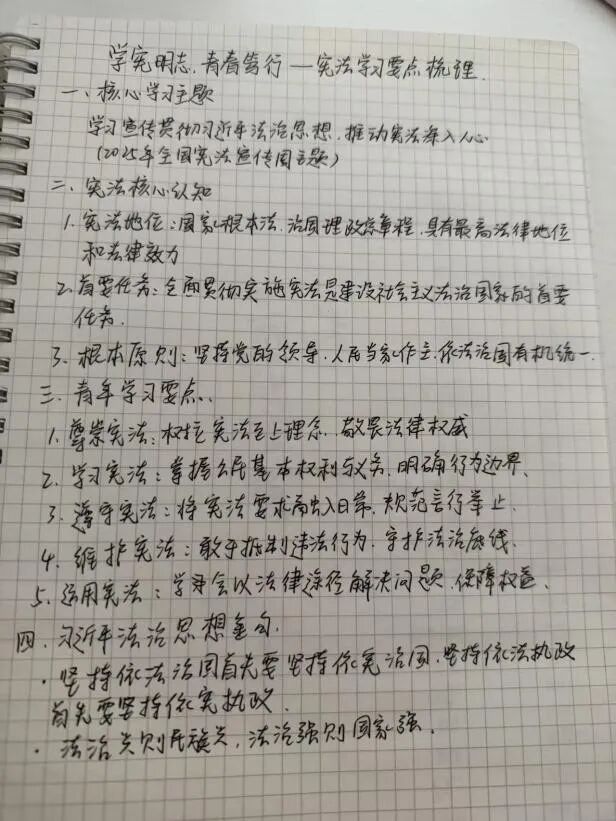 学宪明志,青春笃行—宪法学习要点梳理.
一、核心学习主题
学习宣传贯彻习近平法治思想,推动宪法深入人心
(2025年全国宪法宣传周主题)
二、宪法核心认知
1.宪法地位:国家根本法,治国理政总章程,具有最高法律地位
和法律效力
2.首要任务:全面贯彻实施宪法是建设社会主义法治国家的首要
任务.
3.根本原则:坚持党的领导、人民当家作主、依法治国有机统一.
三.青年学习要点..
1.尊崇宪法:树立宪法至上理念,敬畏法律权威
2.学习宪法:掌握公民基本权利与义务,明确行为边界、
3.遵守宪法:将宪法要求融入日常,规范言行举止.
4.维护宪法:敢于抵制违法行为,守护法治底线.
5.运用宪法:学会以法律途径解决问题,保障权益、
四、习近平法治思想金句.
·坚持依法治国首先要坚持依宪治国,坚持依法执政
首先要坚持依宪执政.
·法治兴则民族兴,法治强则国家强.